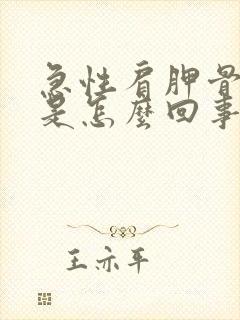 急性肩胛骨
是怎麼回事
王亦平